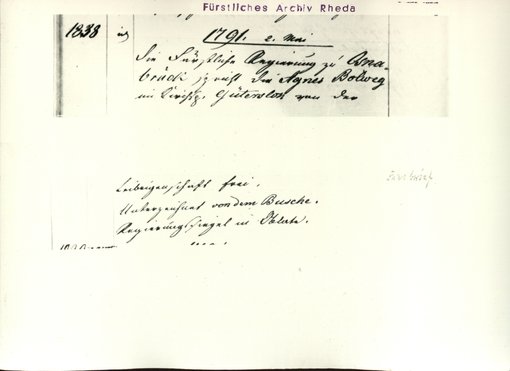 Fürstliches Archiv Rheda
1838
1791. 2. Mai
Die Fürstliche Regierung zu Osna-
brück spricht die Agnes Bolweg
im Kirchsp. Gütersloh von der
Leibeigenschaft frei.
Unterzeichnet von dem Bussche.
Regierungssiegel in Oblate.